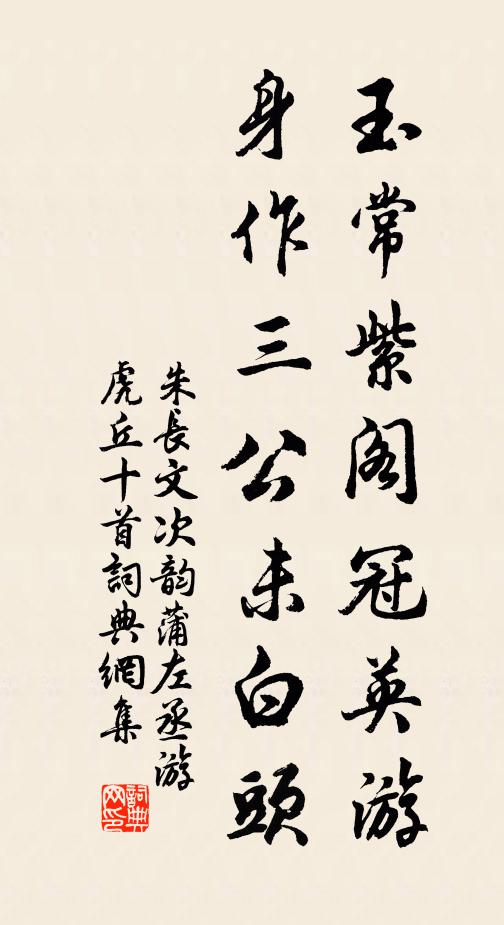 玉常紫阁冠英游
身作三公未白頭
朱長文次韵蒲左丞游
虎丘十首詞典網集
詞典网印